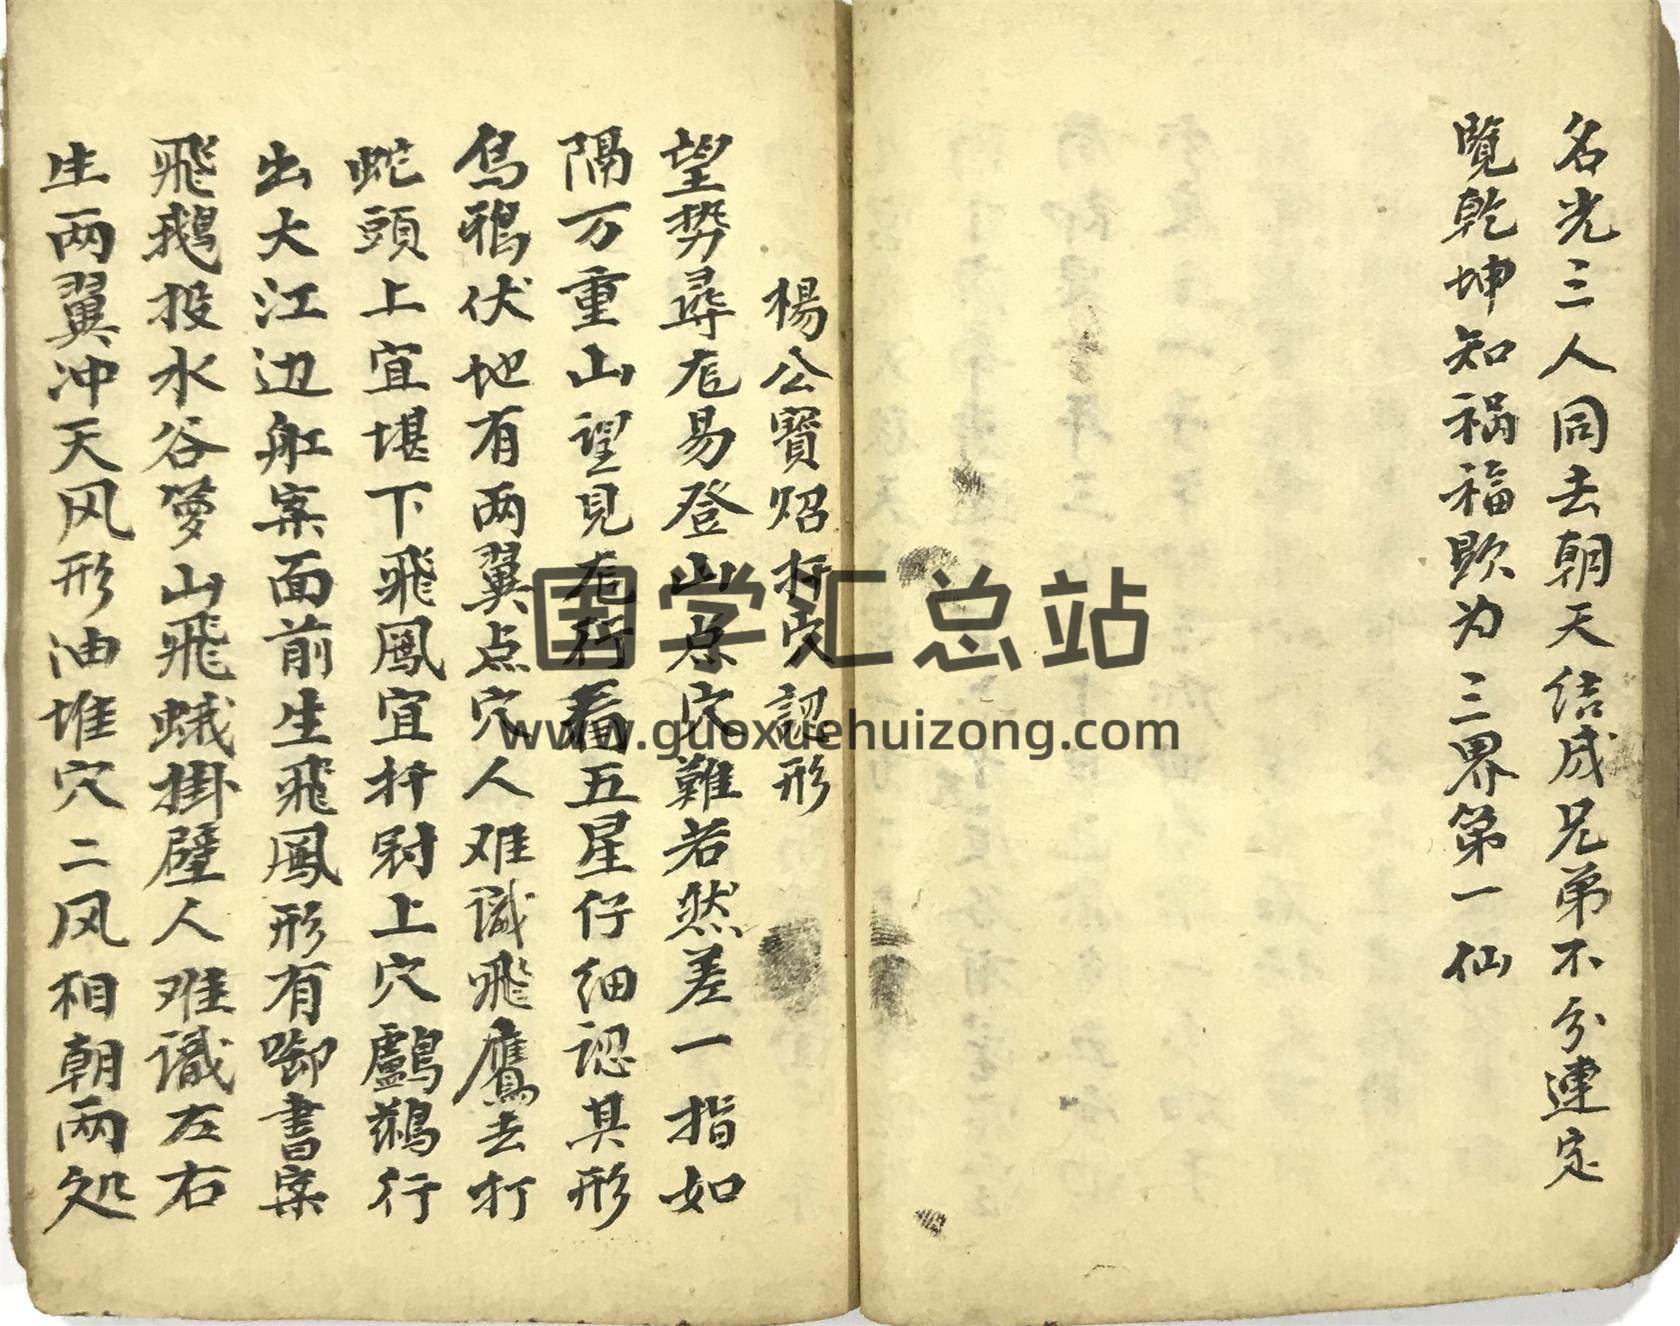 名光三人同去朝天结成兄弟不分連定
覽乾坤知祸福欤为三界第一仙
楊公寶炤扦穴認形
望势尋龙易登山点穴難若然差一指如
隔万重山望見龙行看五星仔细認其形
烏鴉伏地有两翼点穴人难識飛鷹去打
蛇頭上宜堪下飛鳳宜扦尉上穴鸕鷀行
出大江边舡案面前生飛鳳形有啣書案
飛鵝投水谷箩山飛蛾掛壁人难識左右
生两翼冲天风形油堆穴二风相朝两処
国学汇总站
www.guoxuehuizong.com